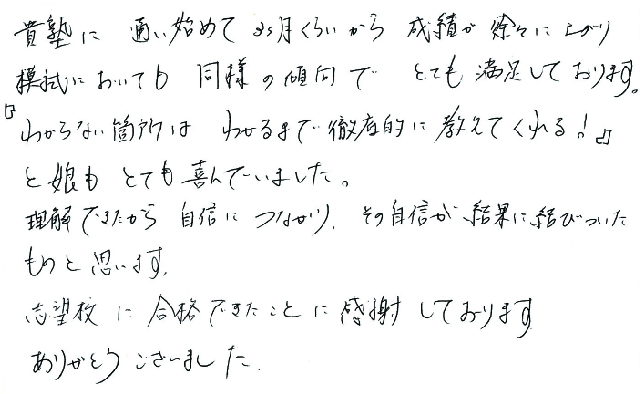 貴塾に 通い始めて 3ヶ月くらいから 成績が 徐々に上がり
模試においても 同様の傾向で とても 満足しております。
『わからない箇所は わかるまで 徹底的に 教えてくれる!』
と娘も とても 喜んでいました。
理解できたから 自信に つながり、その自信が 結果に結びついた
ものと思います。
志望校に 合格できたことに 感謝しております
ありがとうございました.